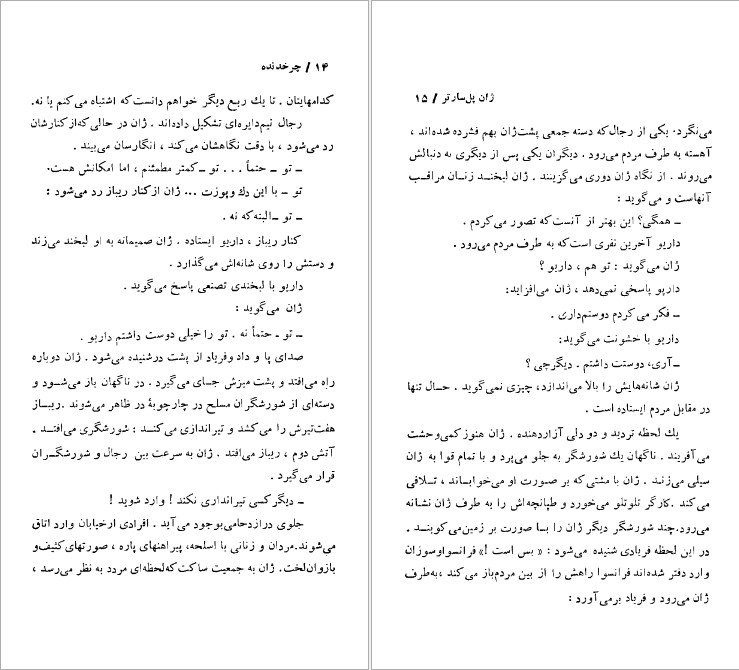 ۱۴ / چرخدنده
کدامهایتان . تا یك ربع دیگر خواهم دانست که اشتباه می‌کنم یا نه.
رجال نیم‌دایره‌ای تشکیل داده‌اند . ژان در حالی‌که از کنارشان
رد می‌شود ، با دقت نگاهشان می‌کند ، انگار سان می‌بیند .
ــ تو ــ حتماً . . . تو ــ کمتر مطمئنم ، اما امکانش هست.
تو ــ با این دك وپوزت ... ژان از کنار ریباز رد می‌شود :
ــ تو ــ البته‌که نه .
کنار ریباز ، داریو ایستاده . ژان صمیمانه به او لبخند می‌زند
و دستش را روی شانه‌اش می‌گذارد .
داریو با لبخندی تصنعی پاسخ می‌گوید .
ژان می‌گوید :
ــ تو ــ حتماً نه . تو را خیلی دوست داشتم داریو .
صدای پا و داد وفریاد از پشت در شنیده می‌شود . ژان دوباره
راه می‌افتد و پشت میزش جــای می‌گیرد . در ناگهان باز می‌شــود و
دسته‌ای از شورشگران مسلح در چارچوبهٔ در ظاهر می‌شوند .ریبــاز
هفت‌تیرش را می‌کشد و تیراندازی می‌کنــد : شورشگری می‌افتــد .
آتش دوم ، ریباز می‌افتد . ژان به سرعت بین رجال و شورشگــران
قرار می‌گیرد .
ــ دیگر کسی تیراندازی نکند ! وارد شوید !
جلوی در ازدحامی‌بوجود می‌آید . افرادی از خیابان وارد اتاق
می‌شوند.مردان و زنانی با اسلحه، پیراهنهای پاره ، صورتهای کثیف و
بازوان لخت. ژان به جمعیت ساکت که لحظه‌ای مردد به نظر می‌رسد ،
ژان پل‌سارتر / ۱۵
می‌نگرد. یکی از رجال که دسته جمعی پشت‌ژان بهم فشرده شده‌اند ،
آهسته به طرف مردم می‌رود . دیگران یکی پس از دیگری به دنبالش
می‌روند . از نگاه ژان دوری می‌گزینند . ژان لبخنــد زنــان مراقب
آنهاست و می‌گوید :
ــ همگی؟ این بهتر از آنست که تصور می‌کردم .
داریو آخرین نفری است‌که به طرف مردم می‌رود .
ژان می‌گوید : تو هم ، داریو ؟
داریو پاسخی نمی‌دهد ، ژان می‌افزاید:
ــ فکر می‌کردم دوستم‌داری .
داریو با خشونت می‌گوید:
ــ آری، دوستت داشتم . دیگرچی ؟
ژان شانه‌هایش را بالا می‌اندازد، چیزی نمی‌گوید . حــال تنها
در مقابل مردم ایستاده است .
یك لحظه تردید و دو دلی آزاردهنده . ژان هنوز کمی‌وحشت
می‌آفریند . ناگهان یك شورشگر به جلو می‌پرد و با تمام قوا به ژان
سیلی می‌زنــد . ژان با مشتی که بر صورت او می‌خوابــاند ، تــلافی
می‌کند .کارگر تلوتلو می‌خورد و طپانچه‌اش را به طرف ژان نشانه
می‌رود.چند شورشگر دیگر ژان را بــا صورت بر زمین‌می‌کوبنــد .
در این لحظه فریادی شنیده می‌شود : « بس است !» فرانسواوسوزان
وارد دفتر شده‌اند فرانسوا راهش را از بین مردم‌باز می‌کند ، به‌طرف
ژان می‌رود و فریاد برمی‌آورد :